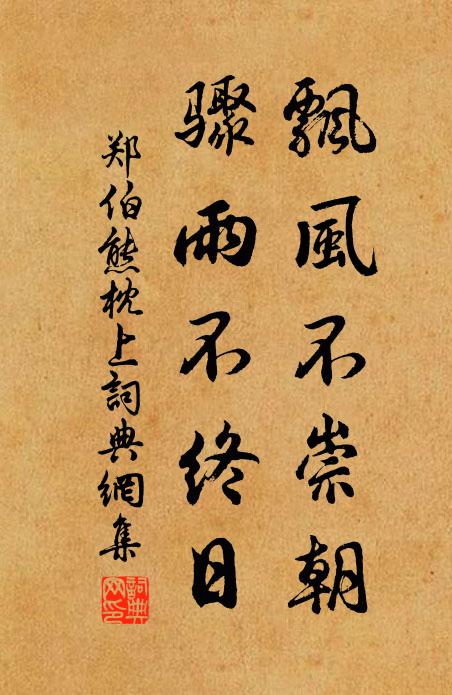 飄風不崇朝
骤雨不终日
郑伯熊枕上詞典網集
詞典網印